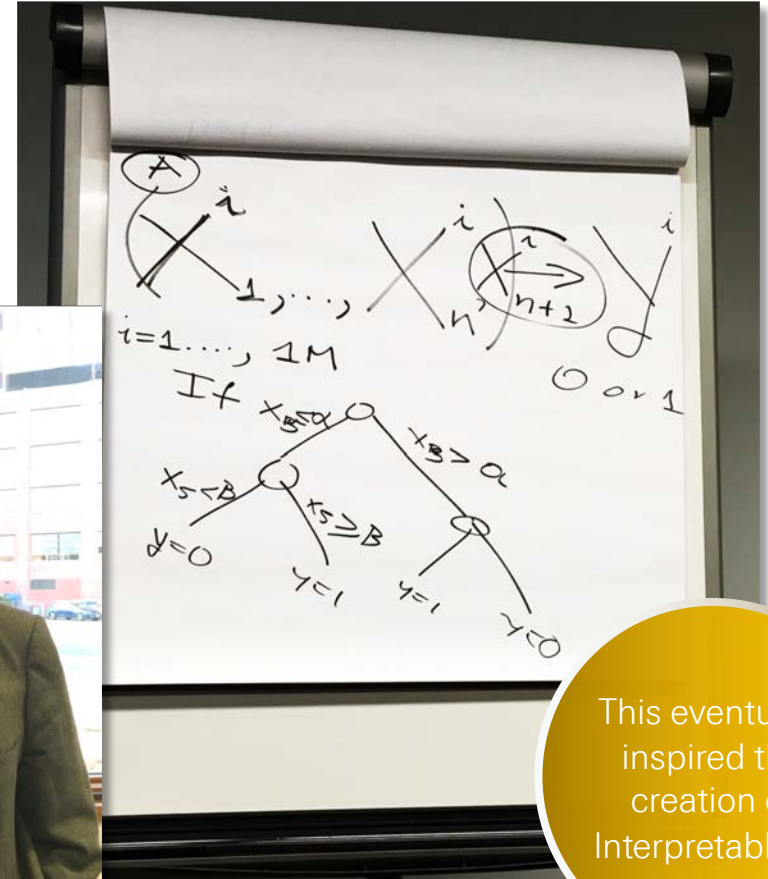 A
X i 1, ..., X i n, X i n+1 → y i
i=1..., 1M
0 or 1
If X3<a
X3> a
X5<B
X5≥B
y=0
y=1
y=1
y=0
This eventu
inspired th
creation o
Interpretabl